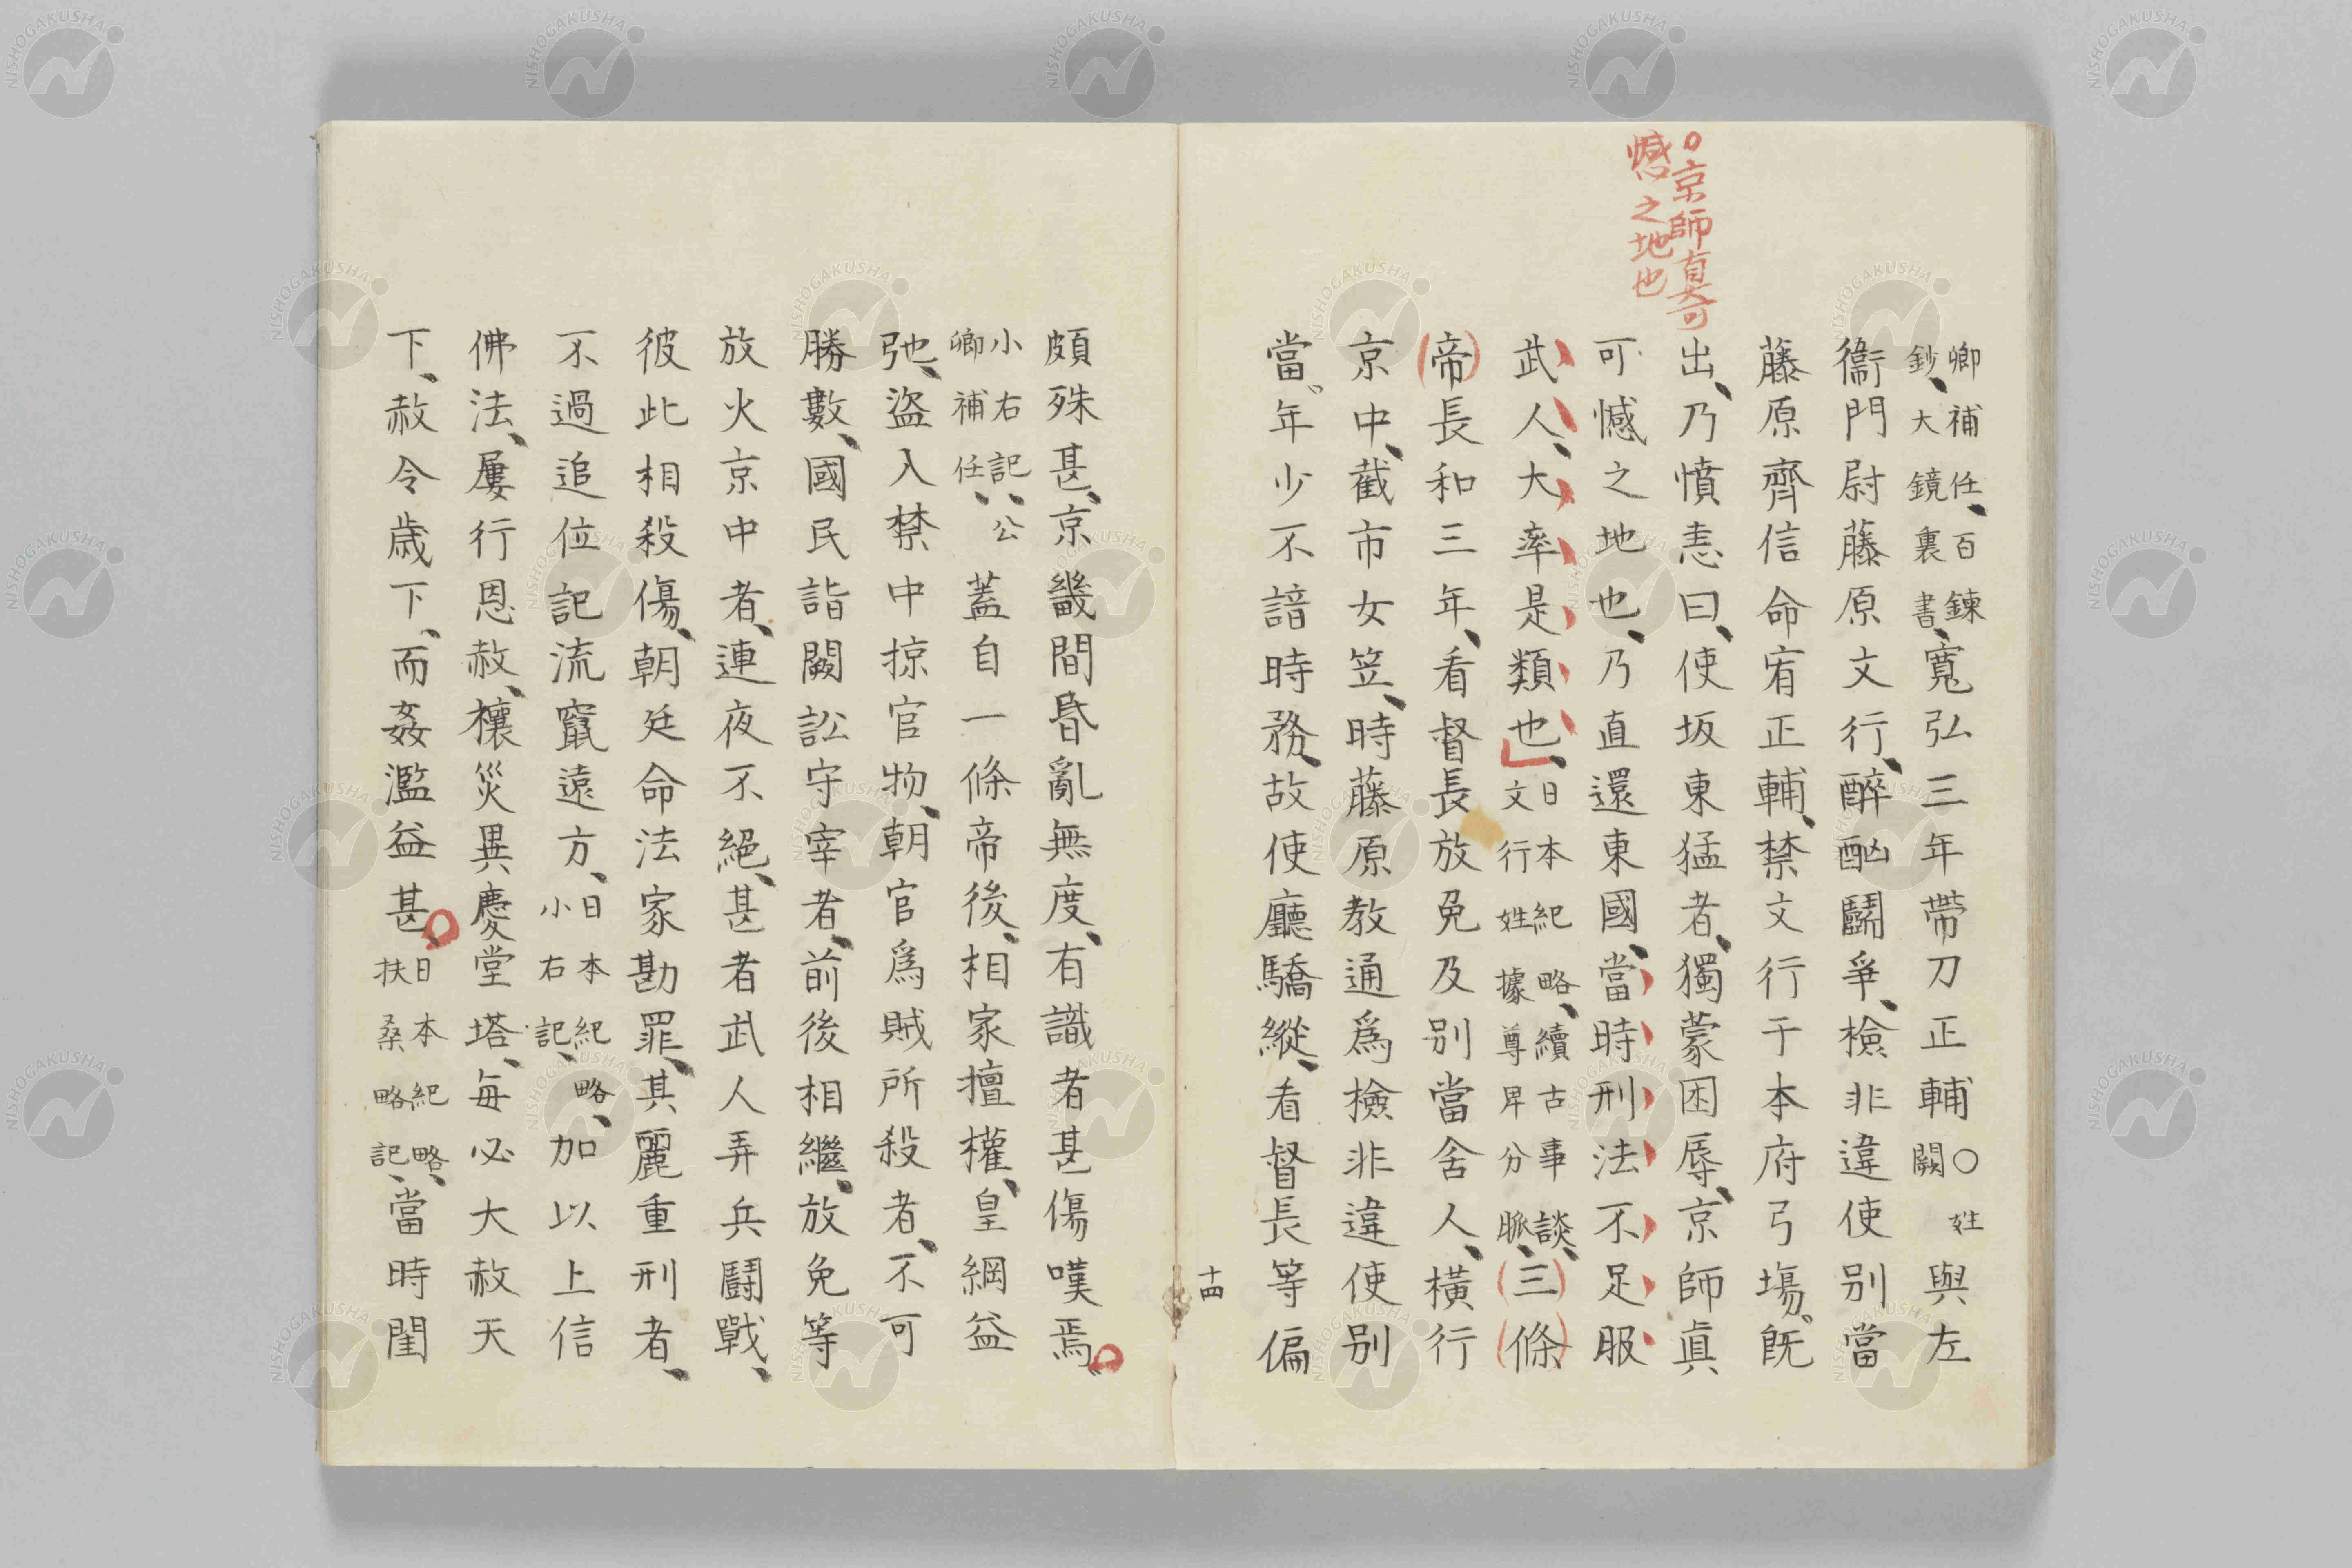 ○京師真可
憾之地也
卿補任、百錬
鈔、大鏡裏書、寬弘三年帶刀正輔○姓
闕與左
衞門尉藤原文行、醉酗鬪爭、檢非違使別當
藤原齊信命宥正輔、禁文行于本府弓場、旣
出、乃憤恚曰、使坂東猛者、獨蒙困辱、京師眞
可憾之地也、乃直還東國、當時刑法不足服
武人、大率是類也、日本紀略、續古事談、
文行姓據尊卑分脈、三條
帝長和三年、看督長放免及別當舍人、橫行
京中、截市女笠、時藤原教通爲檢非違使別
當、年少不諳時務、故使廳驕縱、看督長等偏
十四
頗殊甚、京畿間昏亂無度、有識者甚傷嘆焉、
小右記、公
卿補任、蓋自一條帝後、相家擅權、皇綱益
弛、盜入禁中掠官物、朝官爲賊所殺者、不可
勝數、國民詣闕訟守宰者、前後相繼、放免等
放火京中者、連夜不絕、甚者武人弄兵鬪戰、
彼此相殺傷、朝廷命法家勘罪、其麗重刑者、
不過追位記流竄遠方、日本紀略、
小右記、加以上信
佛法、屢行恩赦、禳災異慶堂塔、每必大赦天
下、赦令歲下、而姦濫益甚、日本紀略、
扶桑略記、當時閨